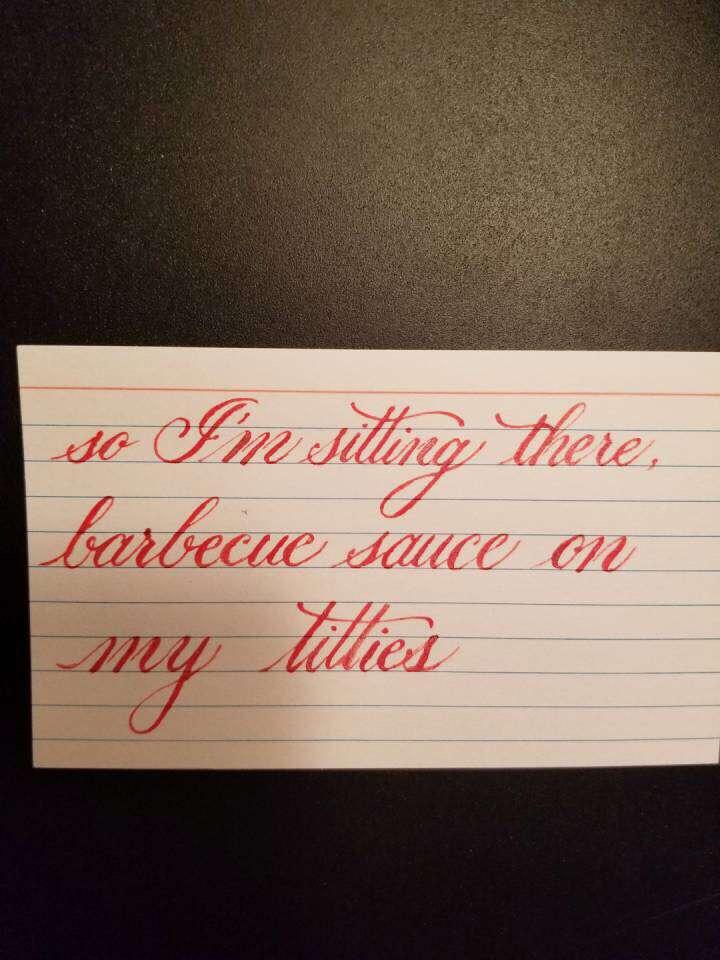 so I'm sitting there,
barbecue sauce on
my titties